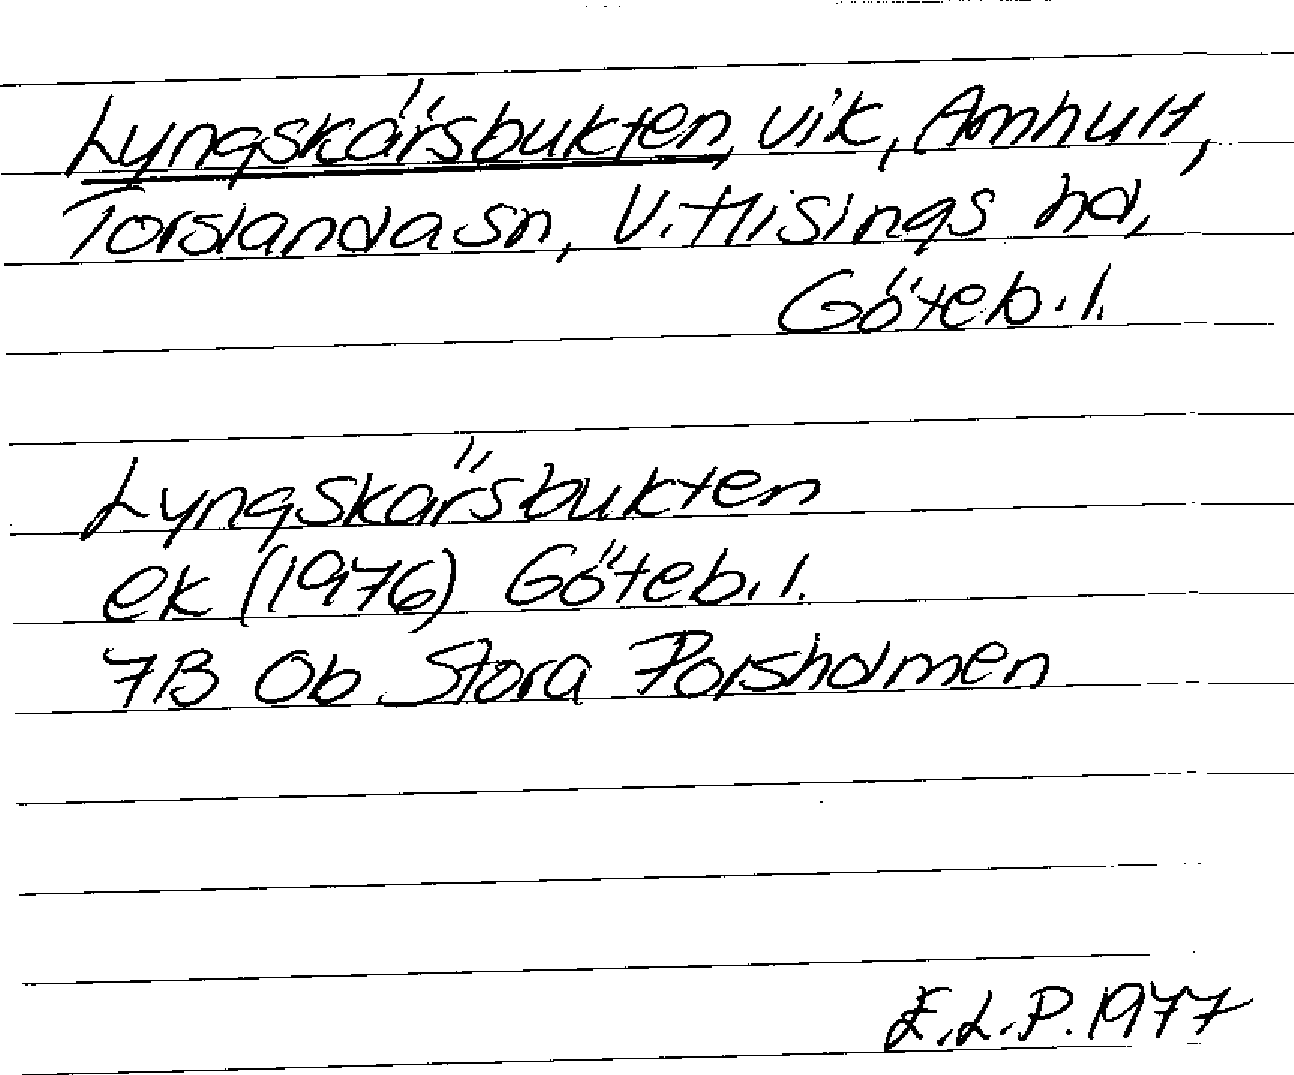 Lyngskärsbukten, vik, Amhult,
Torslanda sn, V. Hisings hd,
Göteb. l.
Lyngskärsbukten
ek (1976) Göteb. l.
7B 0b Stora Porsholmen
E.L.P. 1977